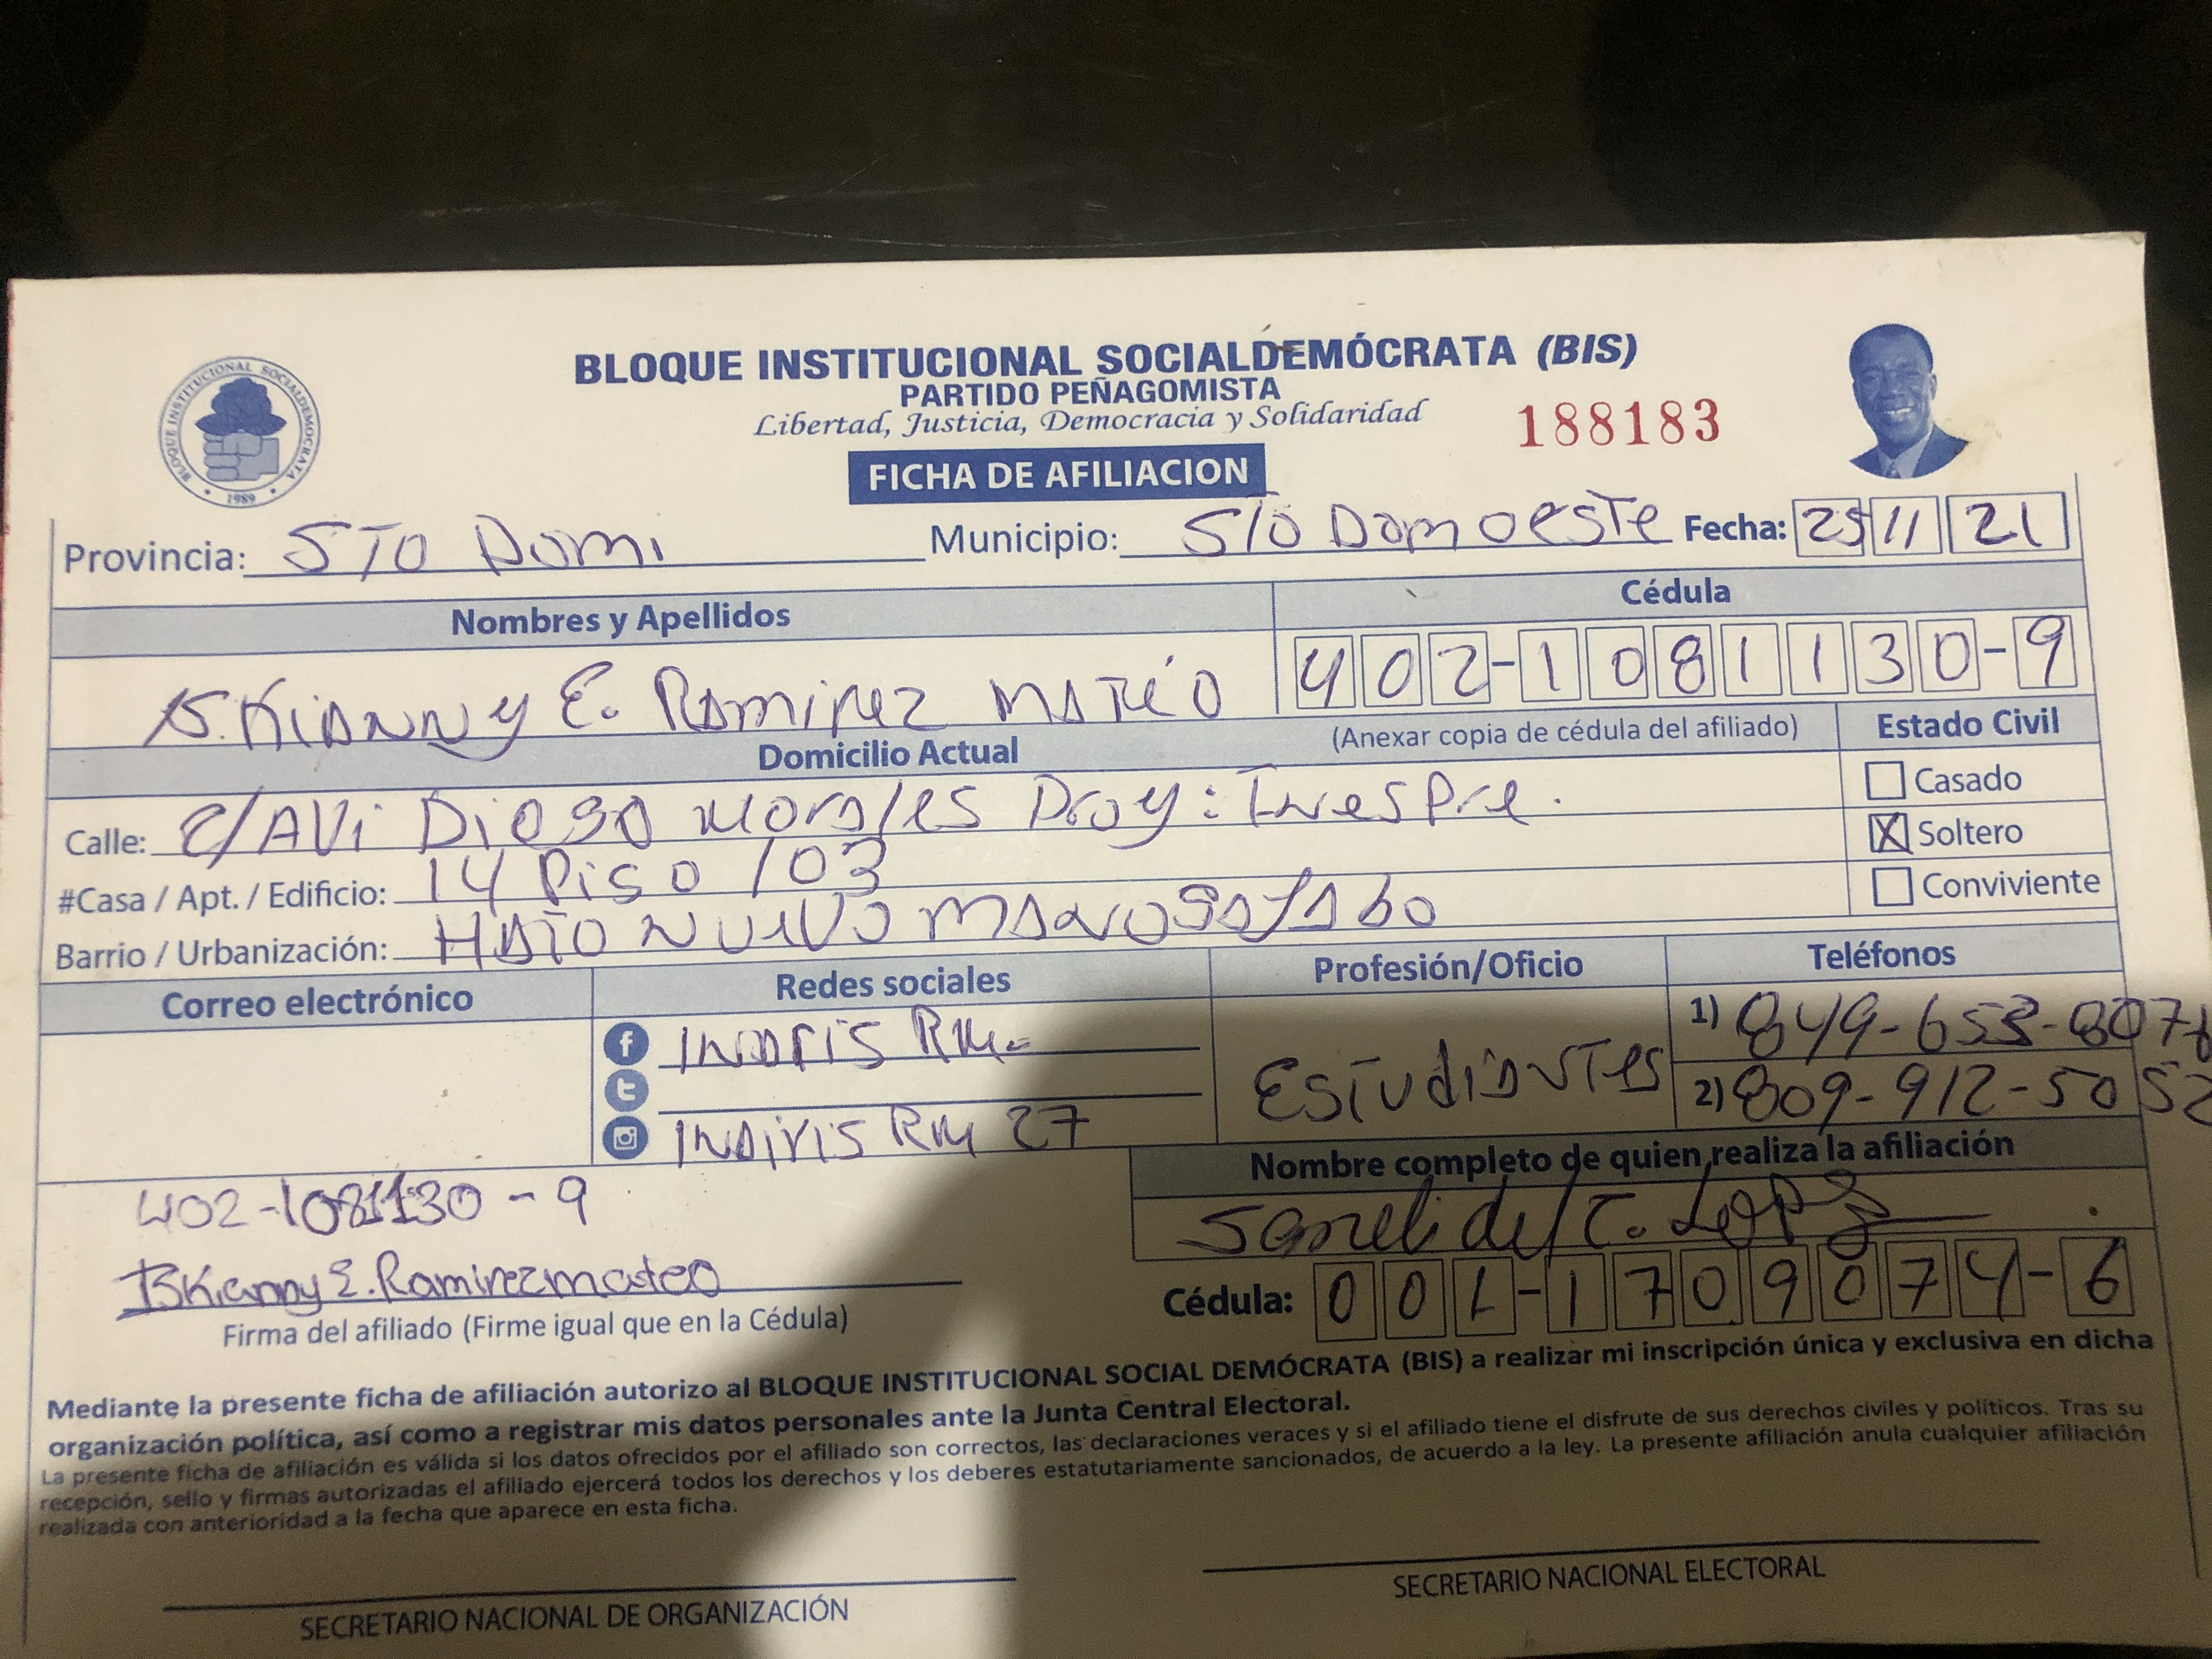 BLOQUE INSTITUCIONAL SOCIALDEMÓCRATA (BIS)
PARTIDO PEÑAGOMISTA
Libertad, Justicia, Democracia y Solidaridad
188183
BLOQUE INSTITUCIONAL SOCIALDEMOCRATA
1989
FICHA DE AFILIACION
Provincia: STO Domi Municipio: STO Dom oeste Fecha: 25 11 21
Nombres y Apellidos Cédula
E. Ramirez Mateo 402-1081130-9
(Anexar copia de cédula del afiliado)
Domicilio Actual Estado Civil
Calle: C/AVi Diego Morales Proy: Inespre.
Casado
X Soltero
#Casa / Apt. / Edificio: 14 Piso 103
Conviviente
Barrio / Urbanización: HATO NUEVO MANOGUAYABO
Correo electrónico Redes sociales Profesión/Oficio Teléfonos
INDRIS RM.
INDIRIS RM 27
Estudiantes
1) 849-653-807
2) 809-912-5052
Nombre completo de quien realiza la afiliación
del C. Lopez
402-1081130-9
E. Ramirez mateo
Firma del afiliado (Firme igual que en la Cédula)
Cédula: 001-1709074-6
Mediante la presente ficha de afiliación autorizo al BLOQUE INSTITUCIONAL SOCIAL DEMÓCRATA (BIS) a realizar mi inscripción única y exclusiva en dicha
organización política, así como a registrar mis datos personales ante la Junta Central Electoral.
La presente ficha de afiliación es válida si los datos ofrecidos por el afiliado son correctos, las declaraciones veraces y si el afiliado tiene el disfrute de sus derechos civiles y políticos. Tras su
recepción, sello y firmas autorizadas el afiliado ejercerá todos los derechos y los deberes estatutariamente sancionados, de acuerdo a la ley. La presente afiliación anula cualquier afiliación
realizada con anterioridad a la fecha que aparece en esta ficha.
SECRETARIO NACIONAL DE ORGANIZACIÓN
SECRETARIO NACIONAL ELECTORAL